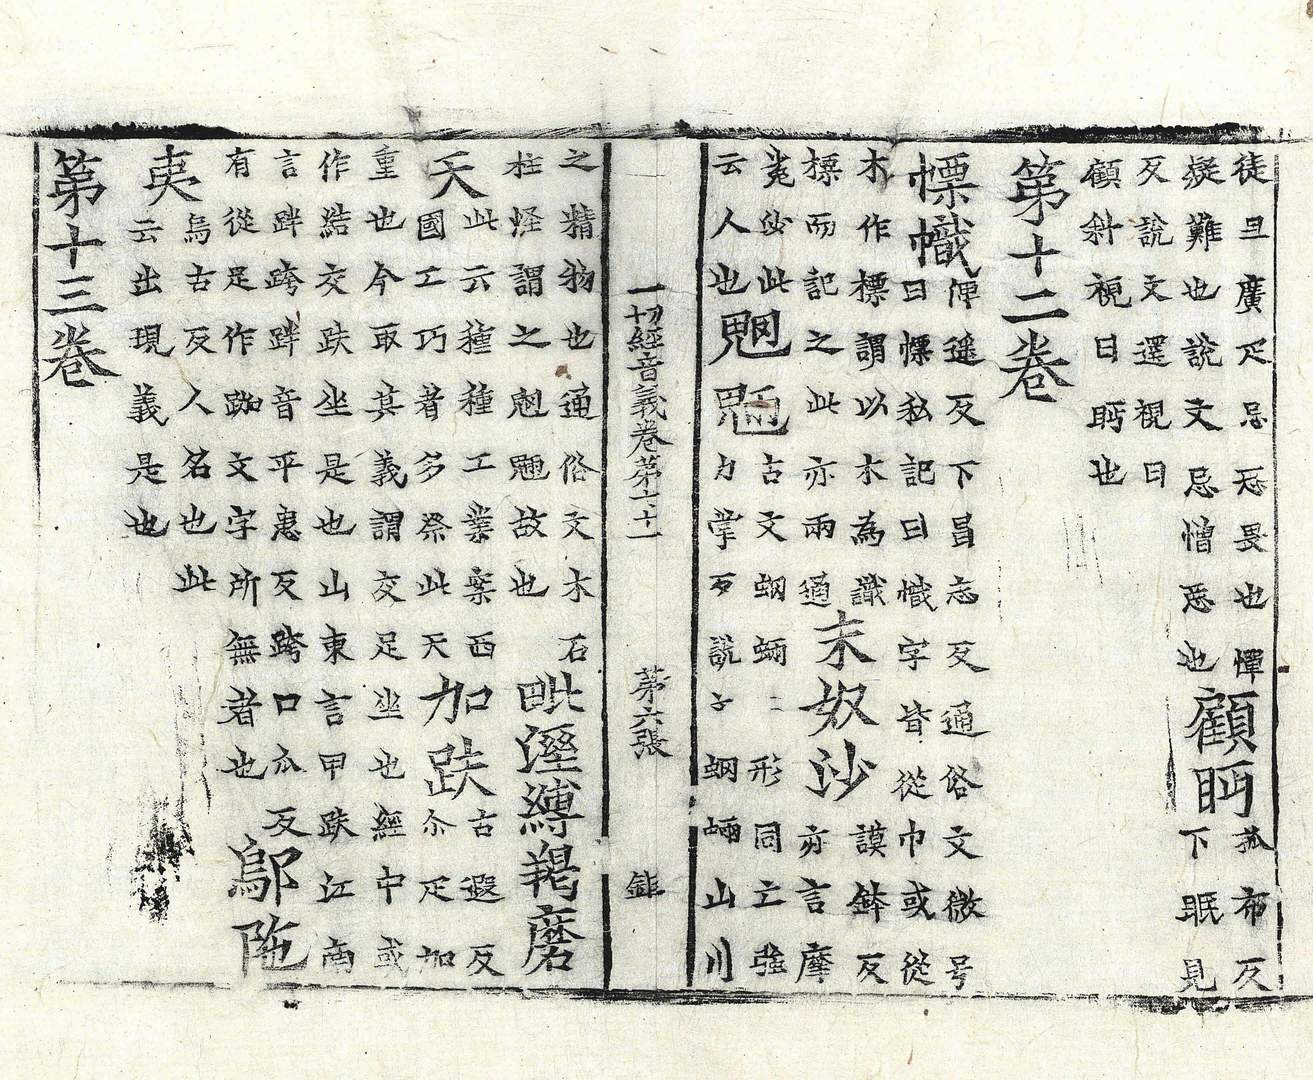 徒旦廣疋忌惡畏也憚
擬難也說文忌憎惡也
顧眄
孤布反
下眠見
反說文還視曰
顧斜視曰眄也
第十二卷
慓幟
俾遥反下昌志反通俗文微号
曰慓私記曰幟字皆從巾或從
木作標謂以木為識
標而記之此亦兩通
末奴沙
謨鉢反
亦言摩
㝹沙此
云人也
魍魎
古文蝄蜽二形同亡强
力掌反說文蝄蜽山川
一切經音義卷第二十一
第六張
之精物也通俗文木石
怪謂之魍魎故也
毗溼縛羯磨
天
此云種種工業案西
國工巧者多祭此天
加趺
古遐反
尒疋加
重也今取其義謂交足坐也經中或
作結交趺坐是也山東言甲趺江南
言跘跨跘音平患反跨口瓜反
有從足作跏文字所無者也
鄔陁
夷
烏古反人名也此
云出現義是也
第十三卷